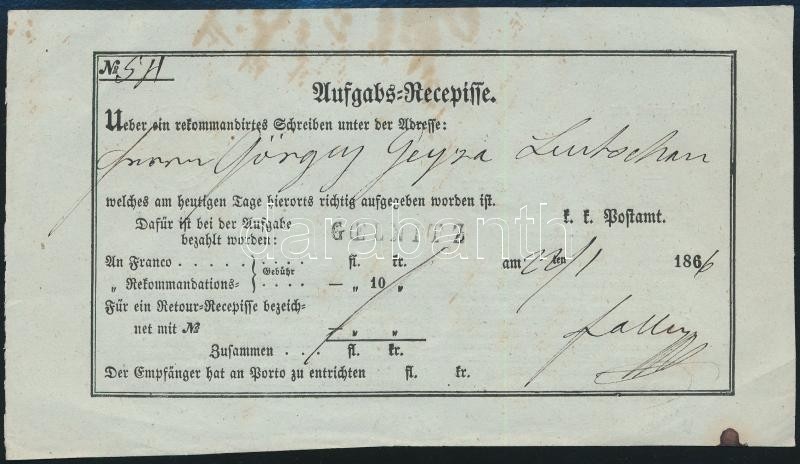 № 511
Aufgabs-Recepisse.
Ueber ein rekommandirtes Schreiben unter der Adresse:
Herrn Görgey Geyza Leutschau
welches am heutigen Tage hierorts richtig aufgegeben worden ist.
Dafür ist bei der Aufgabe
bezahlt worden:
GÖLNITZ
k. k. Postamt.
An Franco . . . . . . . . . . fl. kr.
Gebühr
„ Rekommandations- — „ 10 „
am 22ten/1 1866
Für ein Retour-Recepisse bezeich-
net mit № — „ „
Zusammen . . . fl. kr.
Der Empfänger hat an Porto zu entrichten fl. kr.
darabanth